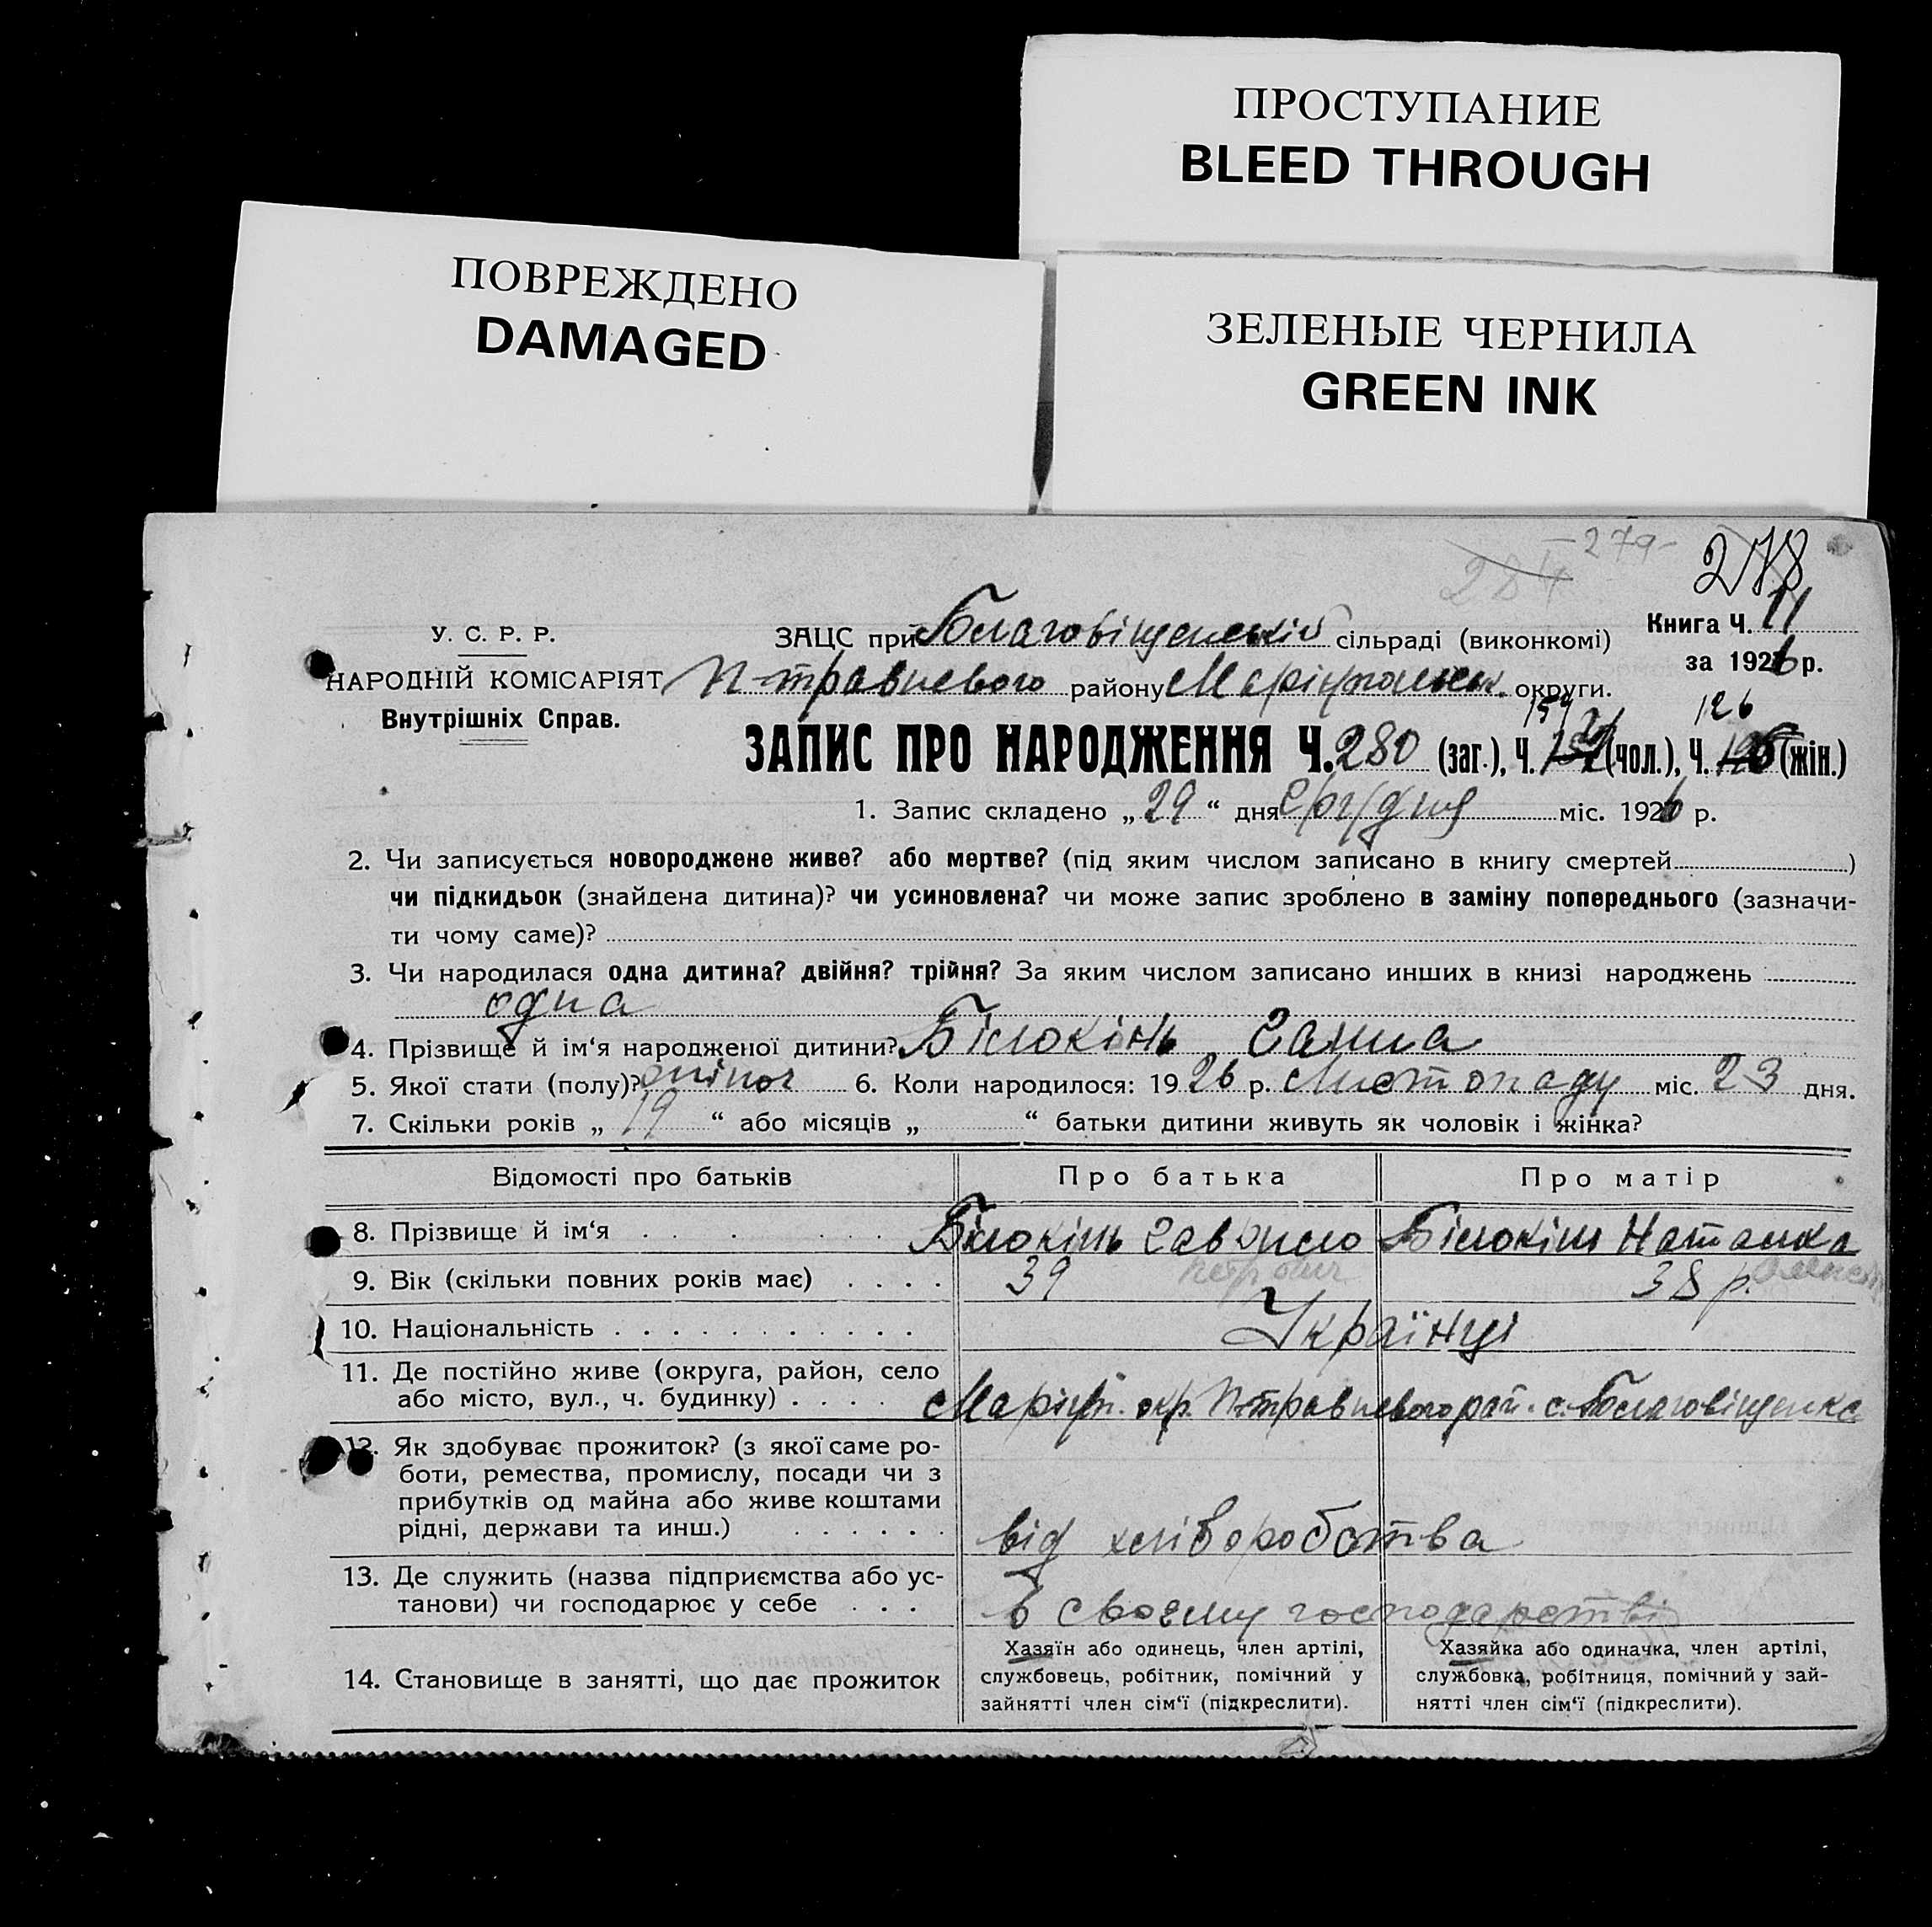 ПРОСТУПАНИЕ
BLEED THROUGH
ПОВРЕЖДЕНО
DAMAGED
ЗЕЛЕНЫЕ ЧЕРНИЛА
GREEN INK
284 -279- 278
У. С. Р. Р.
НАРОДНІЙ КОМІСАРІЯТ
Внутрішніх Справ.
ЗАЦС при Благовіщенській сільраді (виконкомі)
Книга Ч. 11
за 1926 р.
П-травневого району Маріюпольськ. округи.
154 126
ЗАПИС ПРО НАРОДЖЕННЯ Ч. 280 (заг.), Ч. (чол.), Ч. (жін.)
1. Запис складено „ 29 “ дня Грудня міс. 1926 р.
2. Чи записується новороджене живе? або мертве? (під яким числом записано в книгу смертей )
чи підкидьок (знайдена дитина)? чи усиновлена? чи може запис зроблено в заміну попереднього (зазначи-
ти чому саме)?
3. Чи народилася одна дитина? двійня? трійня? За яким числом записано инших в книзі народжень
одна
4. Прізвище й ім‘я народженої дитини? Білокінь Ганна
5. Якої стати (полу)? жіноч 6. Коли народилося: 1926 р. Листопаду міс. 23 дня.
7. Скільки років „ 19 “ або місяців „ “ батьки дитини живуть як чоловік і жінка?
Відомості про батьків Про батька Про матір
8. Прізвище й ім‘я Білокінь Гаврило Білокінь Наталка
Петрович
9. Вік (скільки повних років має) 39 38 р.
10. Національність Українці
11. Де постійно живе (округа, район, село
або місто, вул., ч. будинку) Маріюп. окр. П-травневого рай. с. Благовіщенка
12. Як здобуває прожиток? (з якої саме ро-
боти, ремества, промислу, посади чи з
прибутків од майна або живе коштами
рідні, держави та инш.) від хліборобства
13. Де служить (назва підприємства або ус-
танови) чи господарює у себе в своєму господарстві
14. Становище в занятті, що дає прожиток
Хазяїн або одинець, член артілі,
службовець, робітник, помічний у
зайнятті член сім‘ї (підкреслити).
Хазяйка або одиначка, член артілі,
службовка, робітниця, помічний у зай-
нятті член сім‘ї (підкреслити).